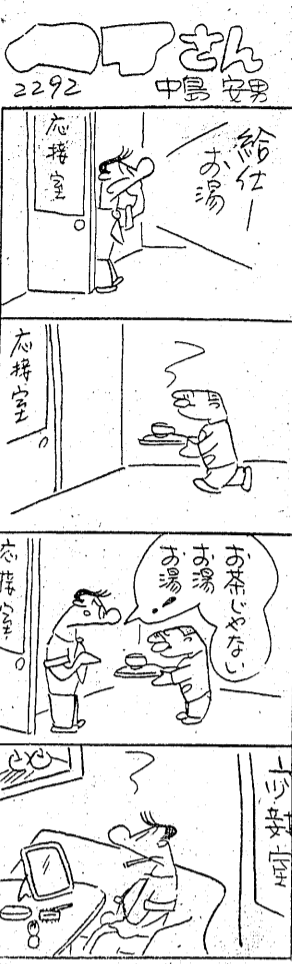 さん
2292
中島 安男
給仕ー
お湯
応接室
応接室
お茶じゃない
お湯
お湯
応接室
応接室